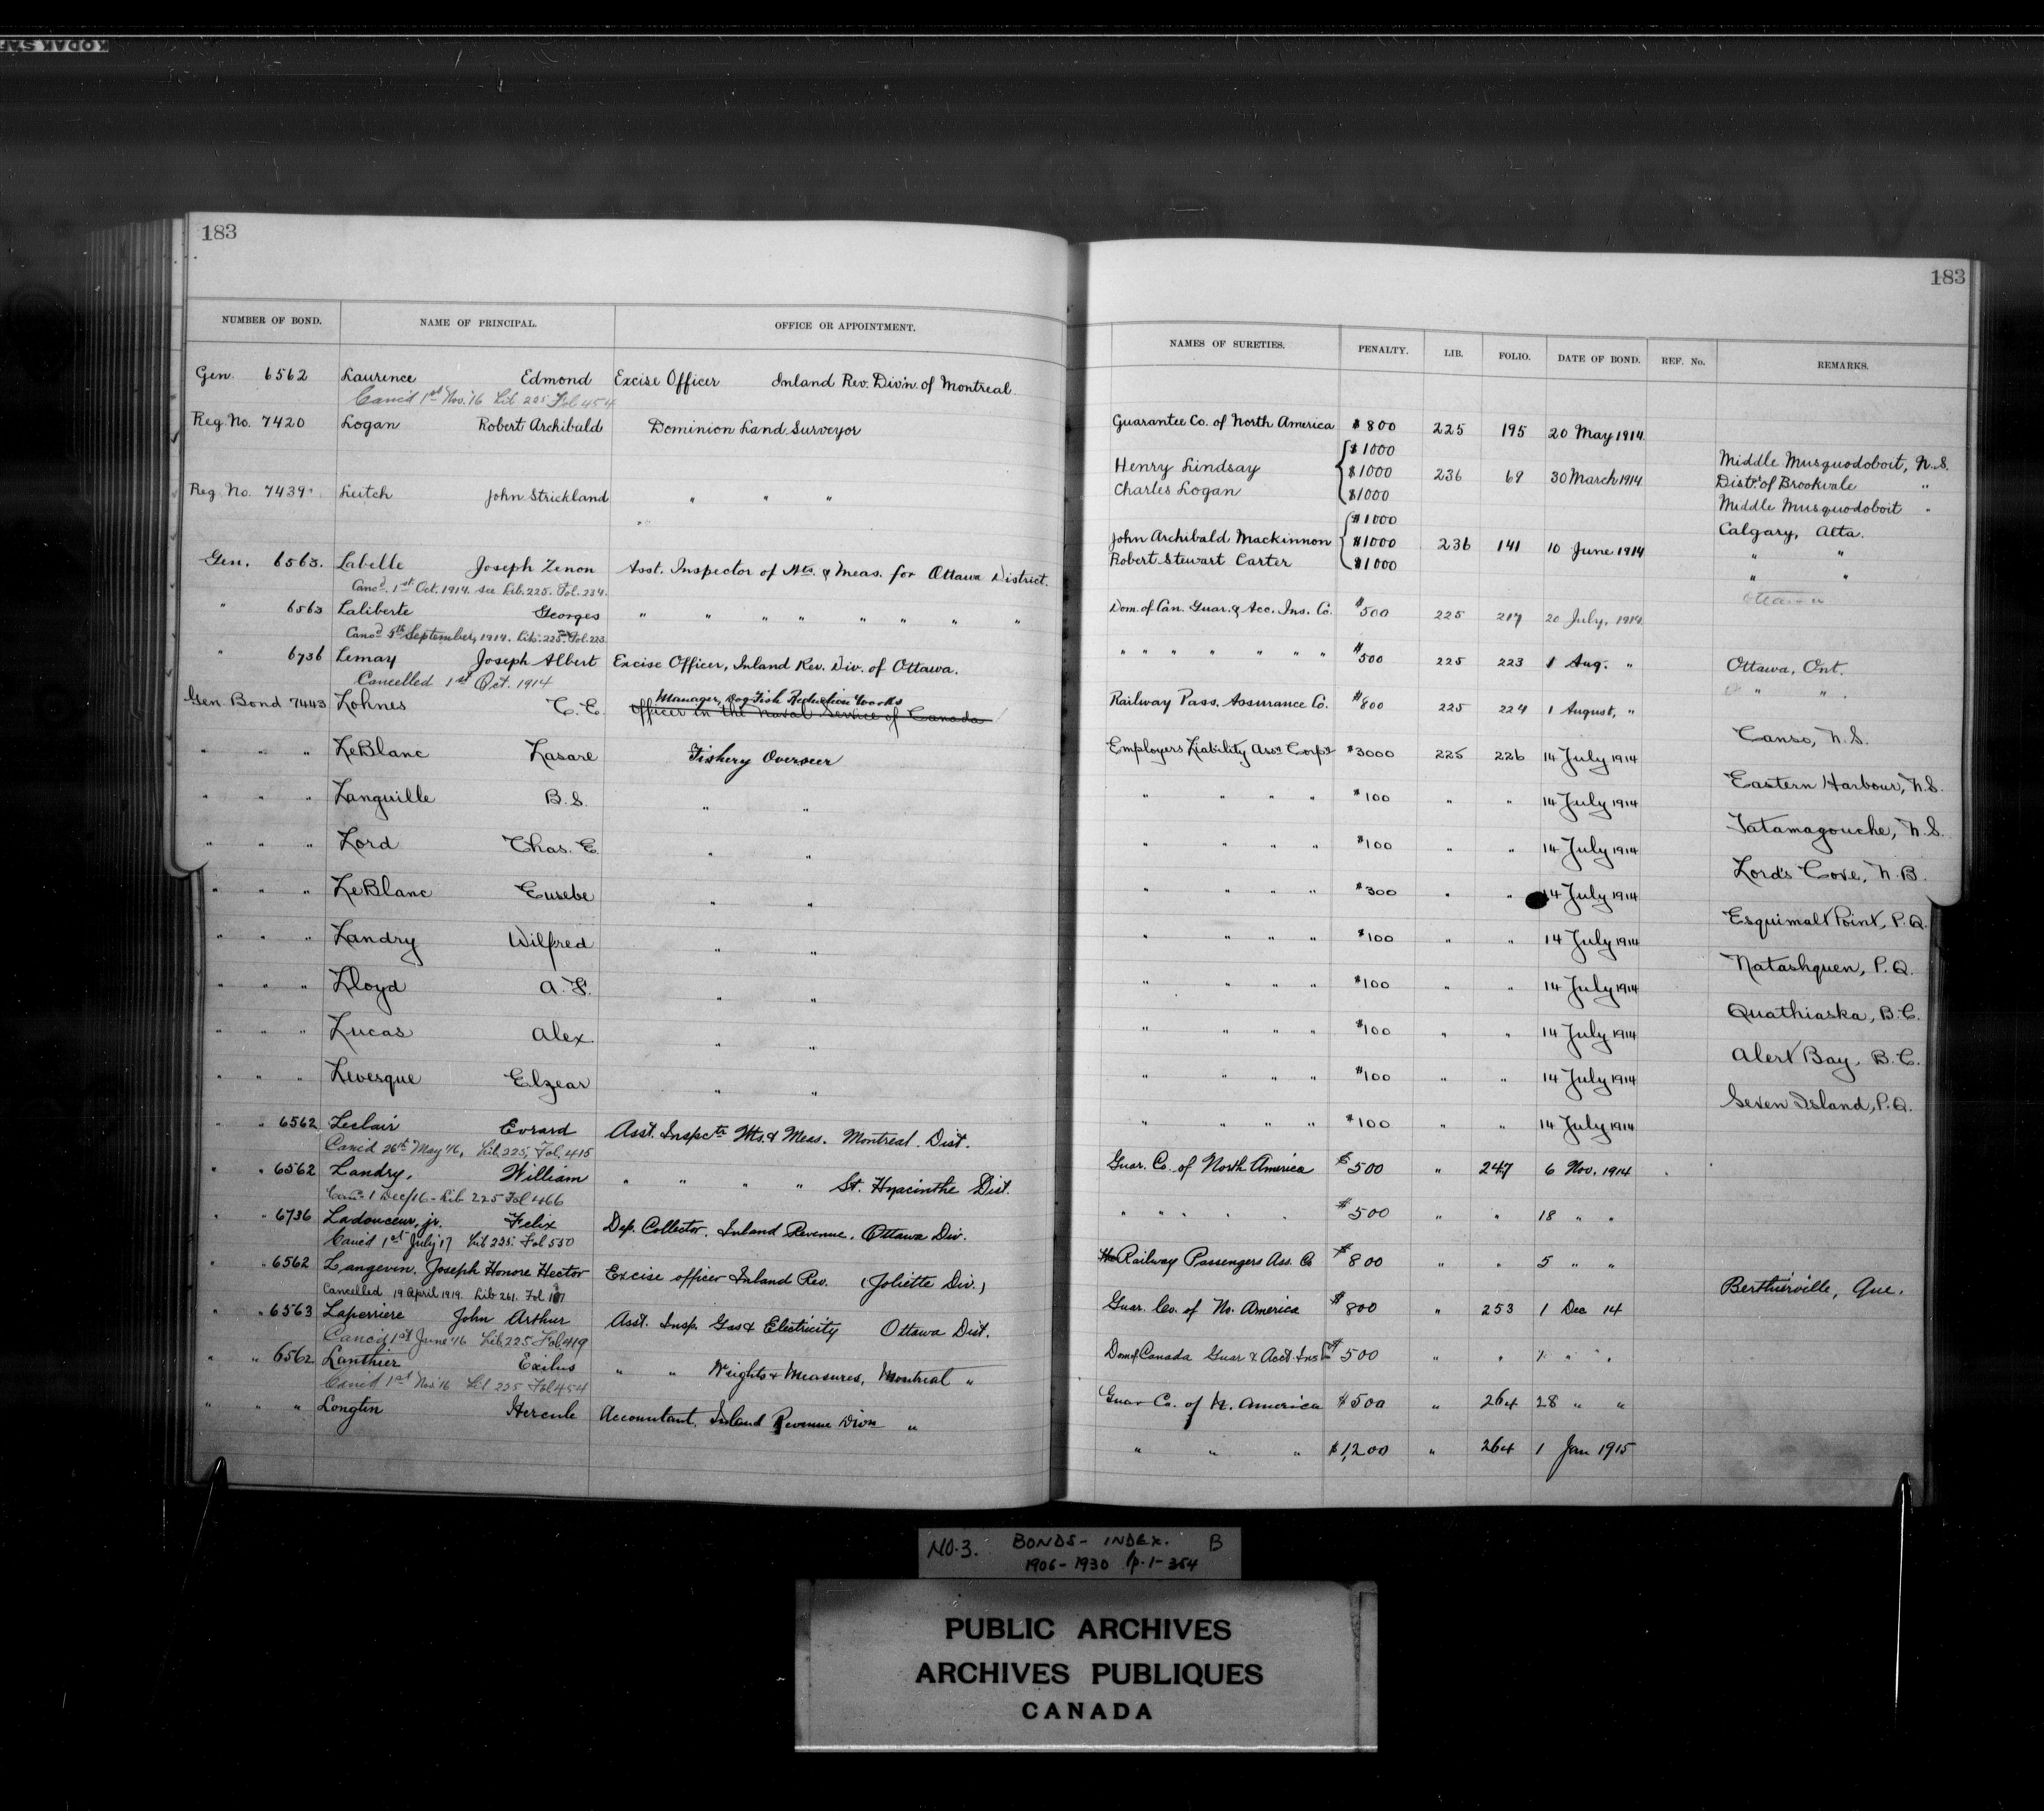 KODAK SAF
183
NUMBER OF BOND. NAME OF PRINCIPAL. OFFICE OR APPOINTMENT.
Gen. 6562 Laurence Edmond Excise Officer Inland Rev. Div'n. of Montreal
Canc'd 1st Nov. '16 Lib 225 Fol 454
Reg. No. 7420 Logan Robert Archibald Dominion Land Surveyor
Reg. No. 7439 Leitch John Strickland " " "
Gen. 6563. Labelle Joseph Zenon Asst. Inspector of Wts. & Meas. for Ottawa District.
Cancd. 1st Oct. 1914. see Lib. 225. Fol. 234.
" 6563 Laliberte Georges " " " " " " " "
Cancd 5th September, 1914. Lib. 225. Fol. 223.
" 6736 Lemay Joseph Albert Excise Officer, Inland Rev. Div. of Ottawa.
Cancelled 1st Oct. 1914
Manager, Dog Fish Reduction Works
Gen. Bond 7443 Lohnes C. E. Officer in the Naval Service of Canada
" " " LeBlanc Lasare Fishery Overseer
" " " Languille B. S. " "
" " " Lord Chas. E. " "
" " " LeBlanc Eusebe " "
" " " Landry Wilfred " "
" " " Lloyd A. F. " "
" " " Lucas Alex " "
" " " Levesque Elzear " "
" " 6562 Leclair Evrard Asst. Inspctr Wts. & Meas. Montreal Dist.
Canc'd 26th May '16, Lib. 225, Fol. 415
" " 6562 Landry, William " " " " St. Hyacinthe Dist.
Canc. 1 Dec/16 - Lib 225 Fol 466
" " 6736 Ladouceur, jr. Felix Dep. Collector, Inland Revenue, Ottawa Div.
Canc'd 1st July '17 Lib 225. Fol 550
" " 6562 Langevin, Joseph Honore Hector Excise officer Inland Rev. (Joliette Div.)
Cancelled 19 April 1919. Lib 261. Fol
" " 6563 Laperriere John Arthur Asst. Insp. Gas & Electricity Ottawa Dist.
Canc'd 1st June '16 Lib. 225 Fol. 419
" " 6562 Lanthier Exilus " " Weights & Measures, Montreal "
Canc'd 1st Nov. '16 Lib 225 Fol 454
" " " Longtin Hercule Accountant, Inland Revenue Divn "
183
NAMES OF SURETIES. PENALTY. LIB. FOLIO. DATE OF BOND. REF. No. REMARKS.
Guarantee Co. of North America $800 225 195 20 May 1914
$1000 Middle Musquodoboit, N.S.
Henry Lindsay $1000 236 69 30 March 1914 Distr. of Brookvale "
Charles Logan $1000 Middle Musquodoboit "
$1000 Calgary, Alta.
John Archibald Mackinnon $1000 236 141 10 June 1914 " "
Robert Stewart Carter $1000 " "
Dom. of Can. Guar. & Acc. Ins. Co. $500 225 217 20 July, 1914 Ottawa
" " " " " " " $500 225 223 1 Aug. " Ottawa, Ont.
Railway Pass. Assurance Co. $800 225 224 1 August, " " "
Employers Liability Assn Corpn $3000 225 226 14 July 1914 Canso, N.S.
" " " " $100 " " 14 July 1914 Eastern Harbour, N.S.
" " " " $100 " " 14 July 1914 Tatamagouche, N.S.
" " " " $300 " " 14 July 1914 Lord's Cove, N.B.
" " " " $100 " " 14 July 1914 Esquimalt Point, P.Q.
" " " " $100 " " 14 July 1914 Natashquen, P.Q.
" " " " $100 " " 14 July 1914 Quathiaska, B.C.
" " " " $100 " " 14 July 1914 Alert Bay, B.C.
" " " " $100 " " 14 July 1914 Seven Island, P.Q.
Guar. Co. of North America $500 " 247 6 Nov. 1914
" " " " " $500 " " 18 " "
The Railway Passengers Ass. Co $800 " " 5 " "
Guar. Co. of No. America $800 " 253 1 Dec 14 Berthierville, Que.
Dom of Canada Guar & Acct. Ins $500 " " 1 " "
Guar Co. of N. America $500 " 264 28 " "
" " " $1,200 " 264 1 Jan 1915
NO. 3. BONDS - INDEX. B
1906 - 1930 p. 1 - 354
PUBLIC ARCHIVES
ARCHIVES PUBLIQUES
CANADA